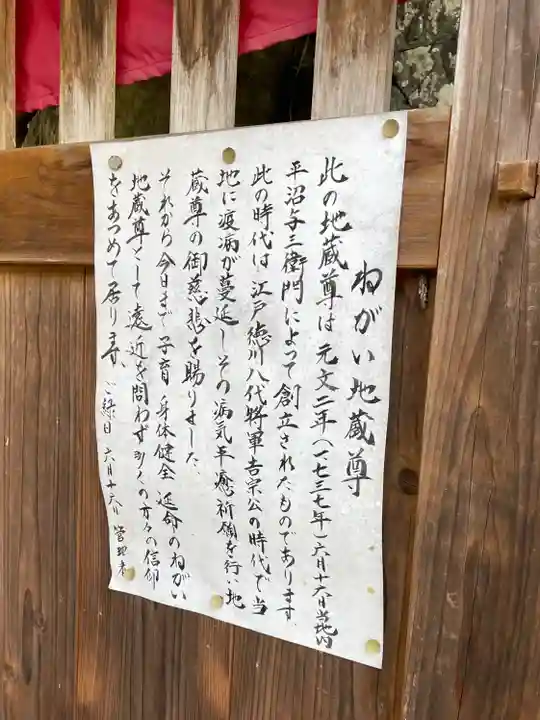 ねがい地蔵尊
此の地蔵尊は元文二年(一七三七年)六月十六日当地内
平沼与三衛門によって創立されたものであります
此の時代は江戸徳川八代将軍吉宗公の時代で当
地に疫病が蔓延しその病気平癒祈願を行い地
蔵尊の御慈悲を賜りました、
それから今日まで子育 身体健全 延命のねがい
地蔵尊として遠近を問わず多くの方々の信仰
をあつめて居ります、
ご縁日 六月十六日 管理者